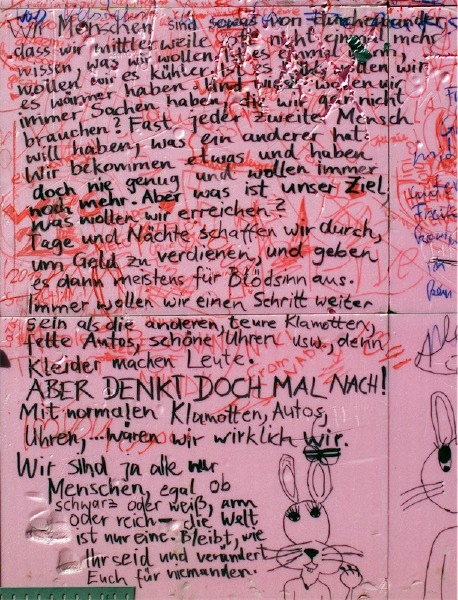 Wir Menschen sind sowas von durcheinander,
dass wir mittlerweile oft nicht einmal mehr
wissen, was wir wollen. Ist es warm,
wollen wir es kühler, ist es kühl, wir
es wärmer haben. Und wieso wollen wir
immer Sachen haben, die wir gar nicht
brauchen? Fast jeder zweite Mensch
will haben, was ein anderer hat.
Wir bekommen etwas und haben
doch nie genug und wollen immer
noch mehr. Aber was ist unser Ziel
was wollen wir erreichen?
Tage und Nächte schaffen wir durch,
um Geld zu verdienen, und geben
es dann meistens für Blödsinn aus.
Immer wollen wir einen Schritt weiter
sein als die anderen, teure Klamotten,
fette Autos, schöne Uhren usw., denn
Kleider machen Leute.
ABER DENKT DOCH MAL NACH!
Mit normalen Klamotten, Autos,
Uhren,... wären wir wirklich wir.
Wir sind ja alle nur
Menschen, egal ob
schwarz oder weiß, arm
oder reich – die Welt
ist nur eine. Bleibt, wie
Ihr seid und verändert
Euch für niemanden.